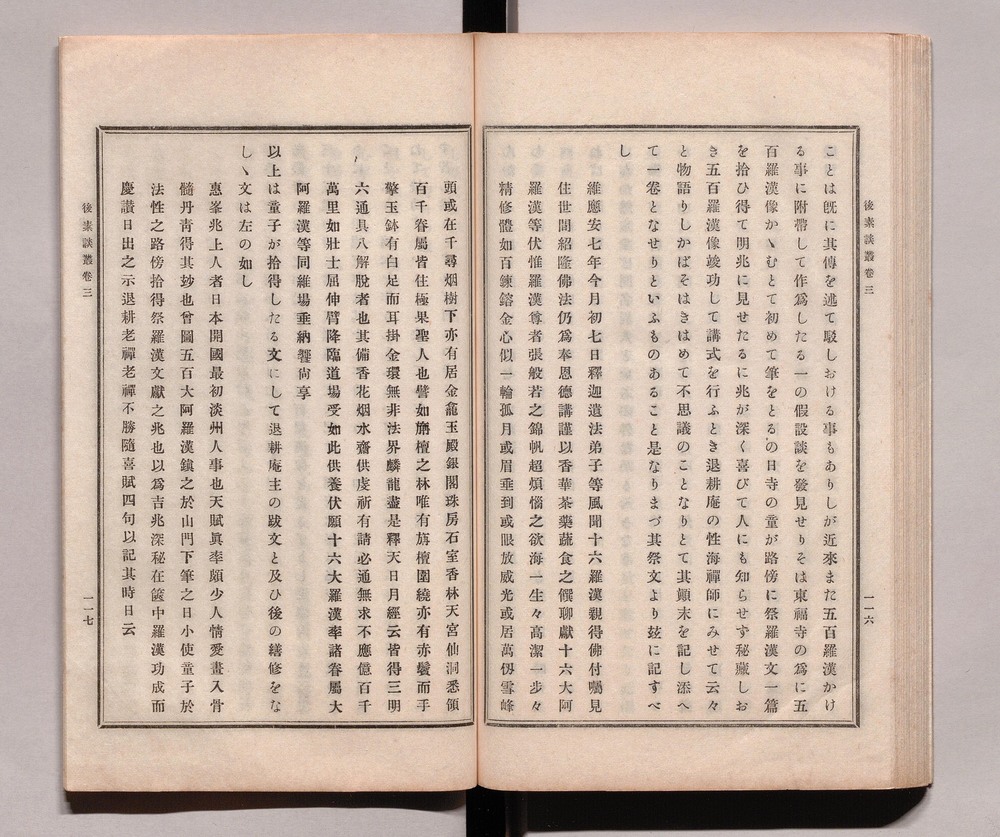 後素談叢卷三
一一六
ことは旣に其傳を述て駁しおける事もありしが近來また五百羅漢かけ
る事に附帶して作爲したる一の假設談を發見せりそは東福寺の爲に五
百羅漢像かゝむとて初めて筆をとるの日寺の童が路傍に祭羅漢文一篇
を拾ひ得て明兆に見せたるに兆が深く喜びて人にも知らせず秘藏しお
き五百羅漢像竣功して講式を行ふとき退耕庵の性海禪師にみせて云々
と物語りしかばそはきはめて不思議のことなりとて其顚末を記し添へ
て一卷となせりといふものあること是なりまづ其祭文より玆に記すべ
し
維應安七年今月初七日釋迦遺法弟子等風聞十六羅漢親得佛付囑見
住世間紹隆佛法仍爲奉恩德講謹以香華茶藥蔬食之饌聊獻十六大阿
羅漢等伏惟羅漢尊者張般若之錦帆超煩惱之欲海一生々高潔一步々
精修體如百鍊鎔金心似一輪孤月或眉垂到或眼放威光或居萬仭雪峰
頭或在千尋烟樹下亦有居金龕玉殿銀閣珠房石室香林天宮仙洞悉領
百千眷屬皆住極果聖人也譬如旃檀之林唯有旃檀圍繞亦有赤鬢而手
擎玉鉢有白足而耳掛金環無非法界麟龍盡是釋天日月經云皆得三明
六通具八解脫者也其備香花烟水齋供虔祈有請必通無求不應億百千
萬里如壯士屈伸臂降臨道場受如此供養伏願十六大羅漢率諸眷屬大
阿羅漢等同維場垂納饗尙享
以上は童子が拾得したる文にして退耕庵主の跋文と及ひ後の繕修をな
しゝ文は左の如し
惠峯兆上人者日本開國最初淡州人事也天賦眞率頗少人情愛畫入骨
髓丹靑得其玅也曾圖五百大阿羅漢鎭之於山門下筆之日小使童子於
法性之路傍拾得祭羅漢文獻之兆也以爲吉兆深秘在篋中羅漢功成而
慶讃日出之示退耕老禪老禪不勝隨喜賦四句以記其時日云
後素談叢卷三
一一七